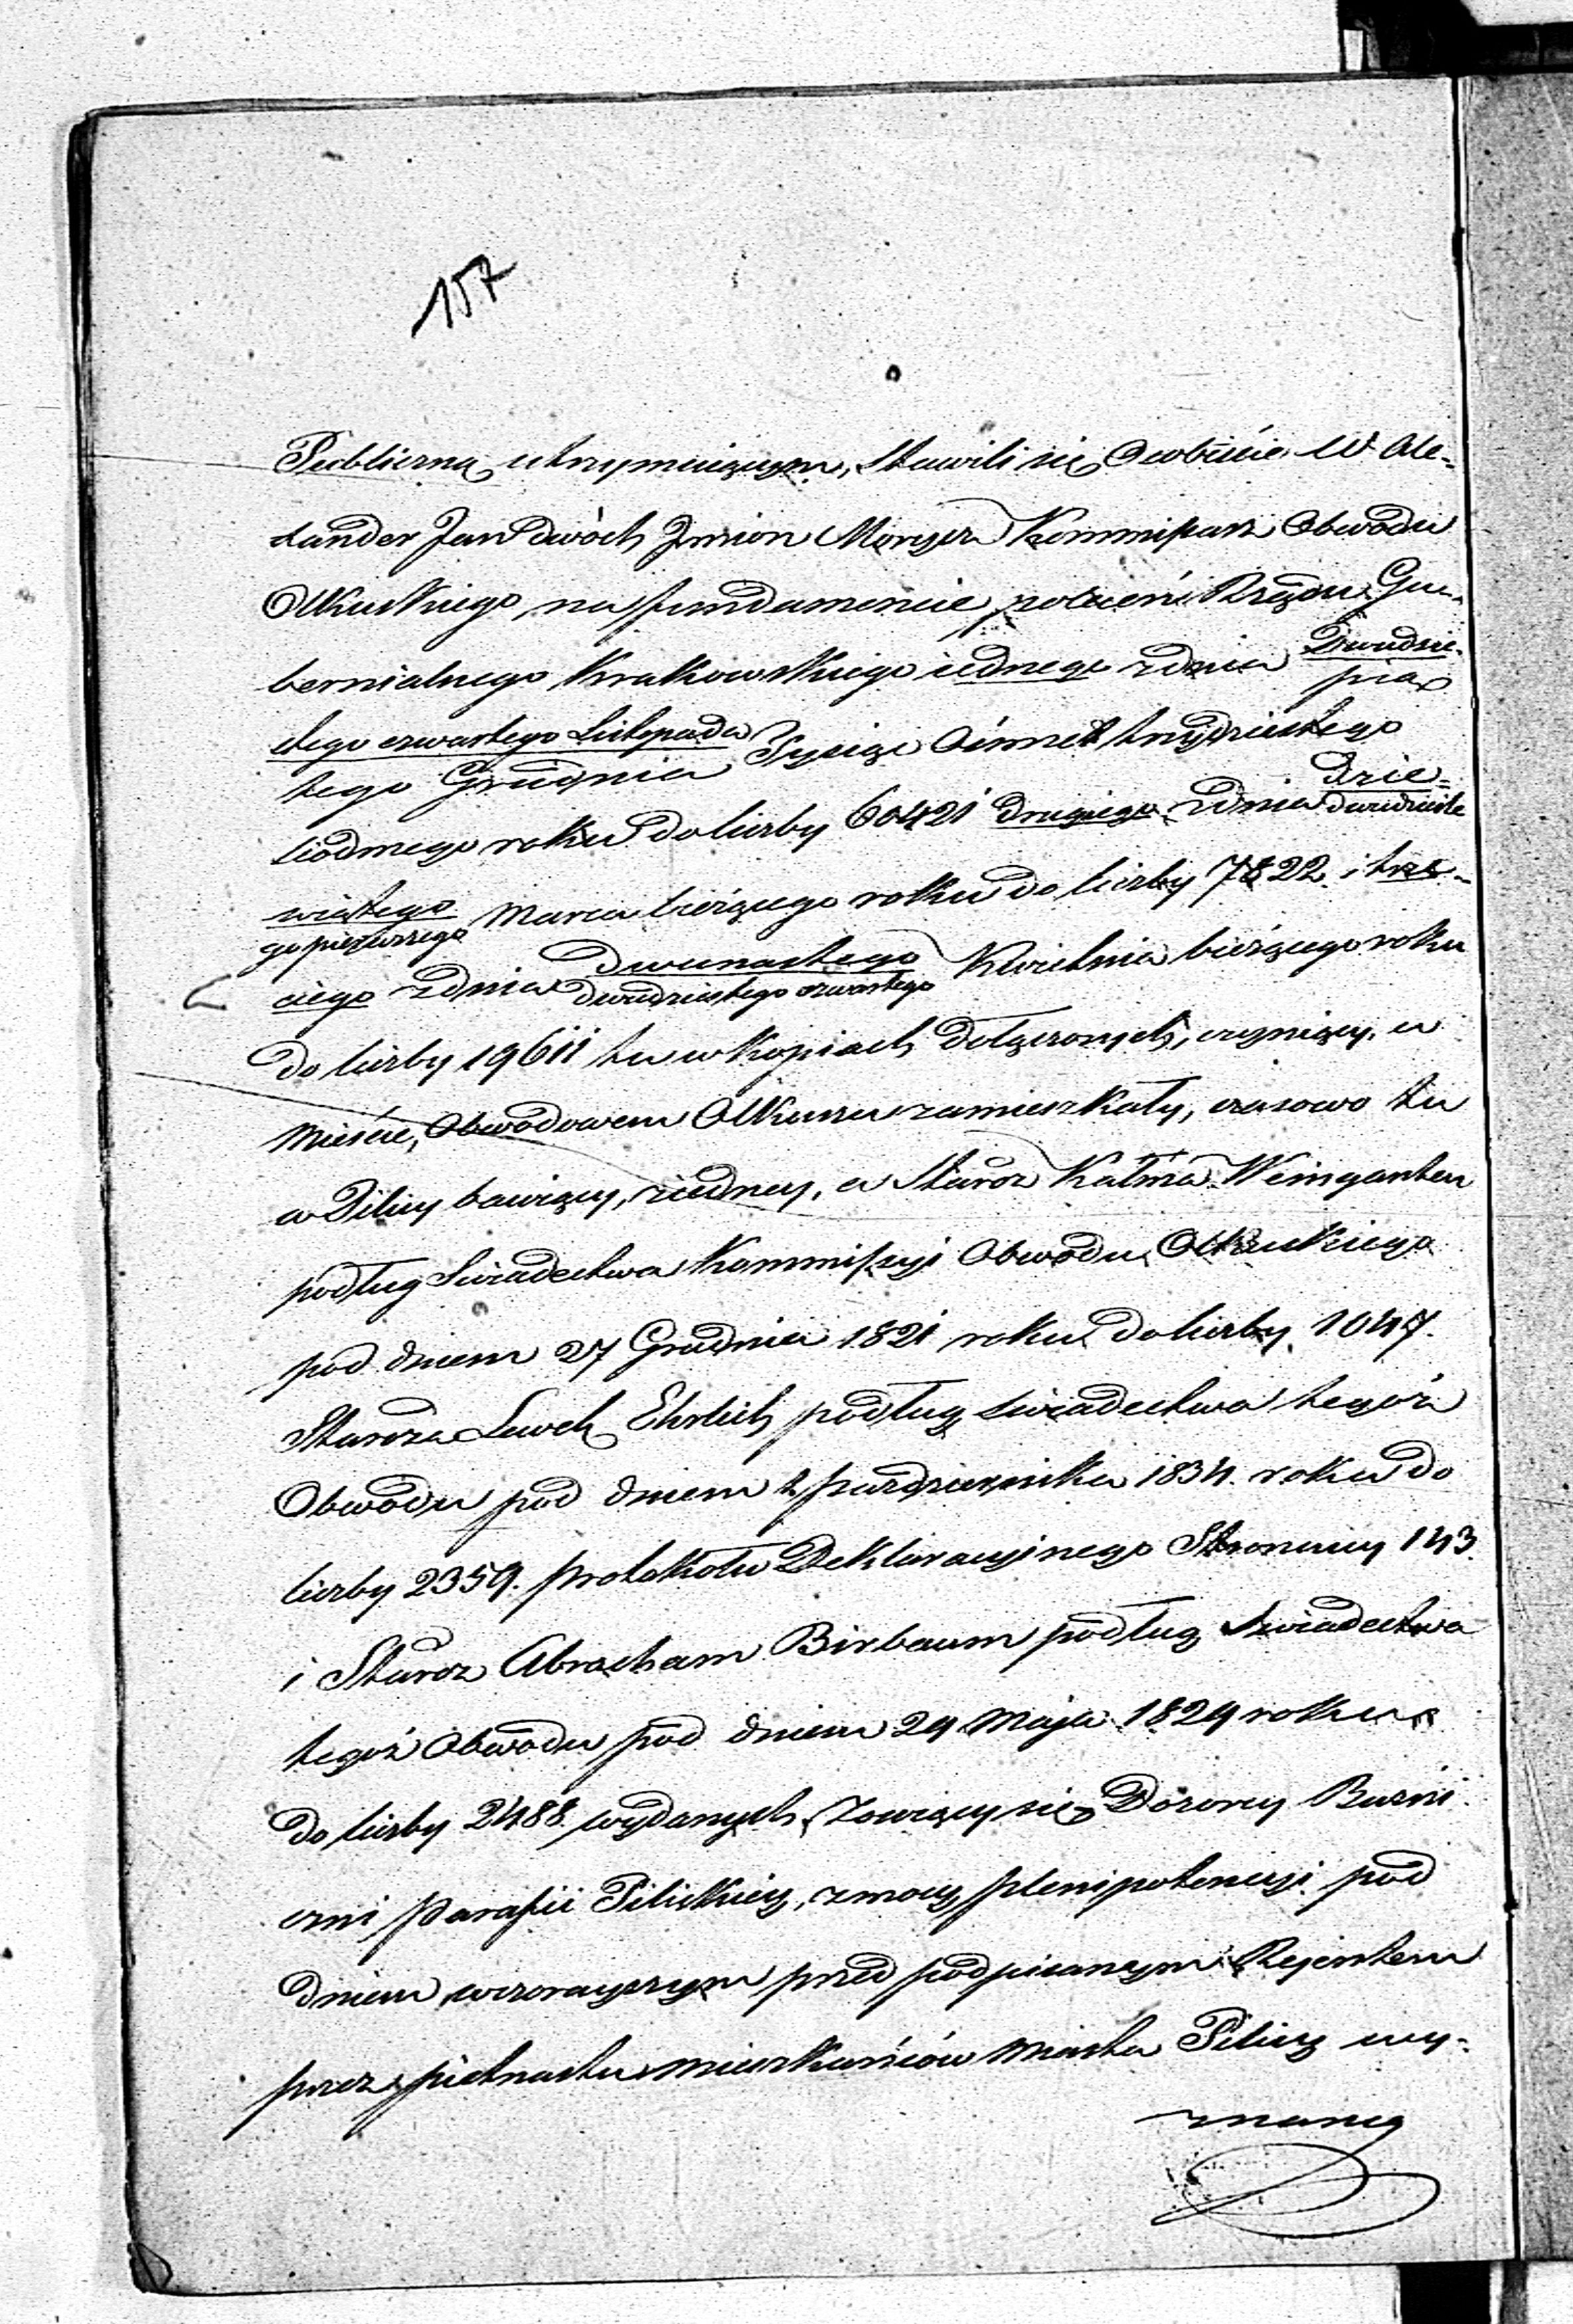 157
Publiczną utrzymuiącym, stawili się Osobiście W. Ale-
xander Jan dwóch Imion Moryza Kommissarz Obwodu
Olkuskiego na fundamencie poleceń Rządu Gu-
bernialnego Krakowskiego iednego z dnia Dwudzie-
pią
stego czwartego Listopada
tego Grudnia Tysiąc Ośmset trzydziestego
siódmego roku do liczby 60421 drugiego z dnia Dzie-
dwudzieste
wiątego
go pierwszego Marca bieżącego roku do liczby 7822. i trze-
ciego z dnia Dwunastego
dwudziestego czwartego Kwietnia bieżącego roku
do liczby 19611 tu w Kopiach dołączonych, czyniący, w
Mieście Obwodowem Olkuszu zamieszkały, czasowo tu
w Pilicy bawiący, z iedney, a Staroz. Kalma Weingarten
podług Świadectwa Kommissyi Obwodu Olkuskiego
pod dniem 27 Grudnia 1821 roku do liczby 1047.
Staroza. Lewek Ehrlich podług świadectwa tegoż
Obwodu pod dniem 2 października 1834. roku do
liczby 2359. protokołu Deklaracyinego Stronnicy 143.
i Staroz. Abracham Birbaum podług Świadectwa
tegoż Obwodu pod dniem 29 Maja 1829 roku
do liczby 2488. wydanych, zowiący się Dozorcy Buźni
czni Parafii Pilickiey, z mocy plenipotencyi pod
dniem wczorayszym przed podpisanym Rejentem
przez piętnastu mieszkańców miasta Pilicy wy-
znaney